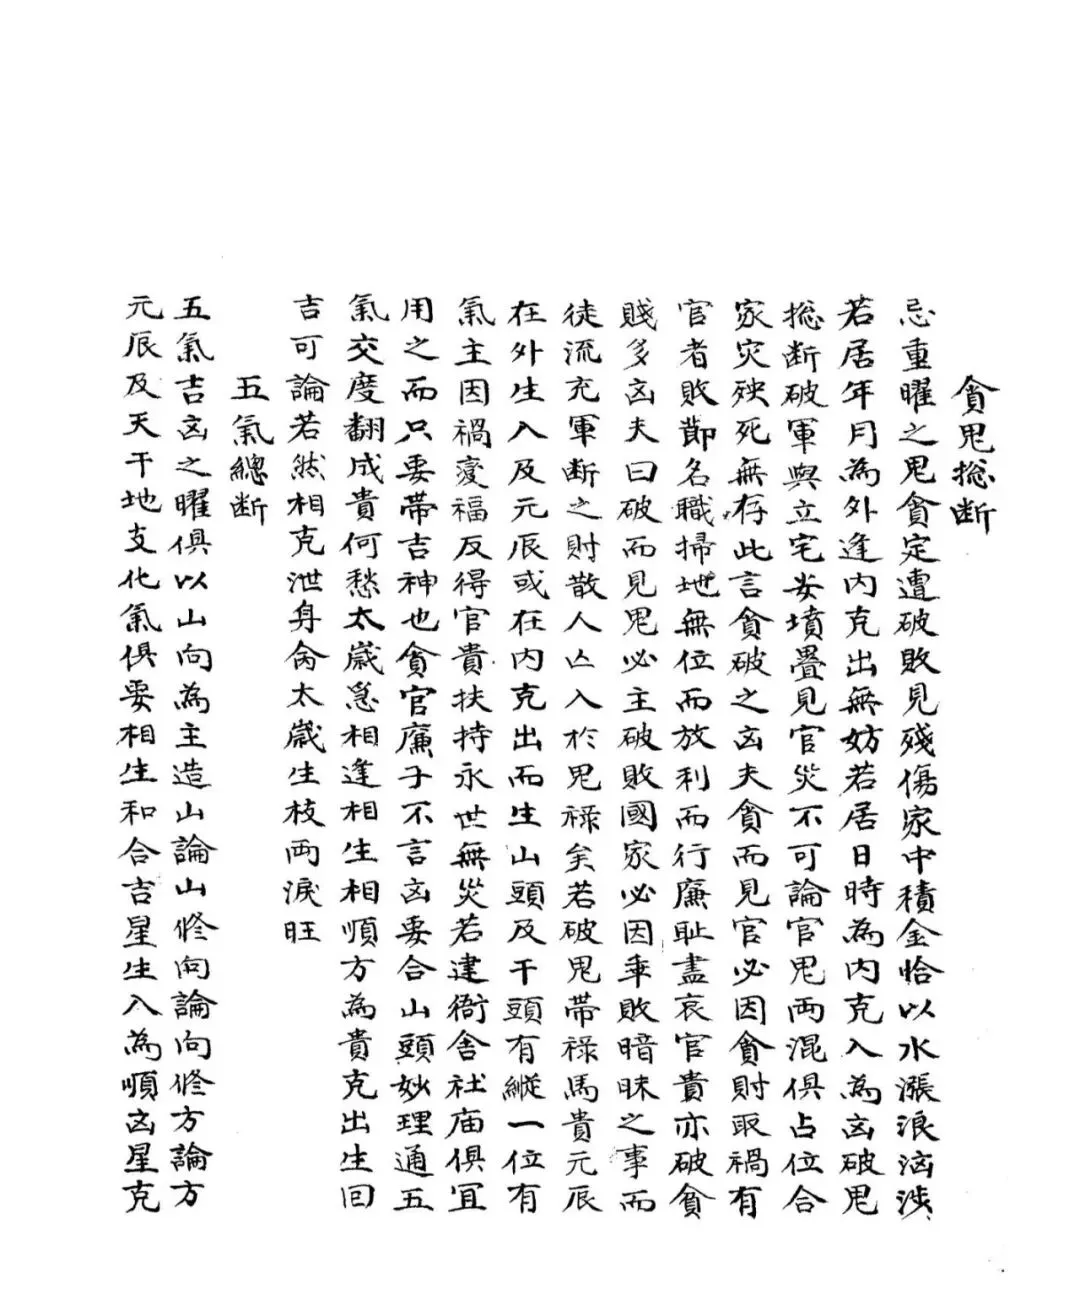 貪鬼捴断
忌重曜之鬼貪定遭破敗見殘傷家中積金恰以水漲浪汹涉
若居年月為外逢內克出無妨若居日時為內克入為凶破鬼
捴断破軍與立宅安墳疊見官災不可論官鬼両混俱占位合
家灾殃死無存此言貪破之凶夫貪而見官必因貪財取禍有
官者敗節名職掃地無位而放利而行廉耻盡哀官貴亦破貪
賤多凶夫曰破而見鬼必主破敗國家必因乖敗暗昧之事而
徒流充軍断之財散人亾入於鬼禄矣若破鬼帶禄馬貴元辰
在外生入及元辰或在內克出而生山頭及干頭有縱一位有
氣主因禍變福反得官貴扶持永世無災若建衙舎社庙俱宜
用之而只要帶吉神也貪官廉子不言凶要合山頭妙理通五
氣交度翻成貴何愁太歳急相逢相生相順方為貴克出生回
吉可論若然相克泄身禽太歳生枝両淚旺
五氣總断
五氣吉凶之曜俱以山向為主造山論山修向論向修方論方
元辰及天干地支化氣俱要相生和合吉星生入為順凶星克